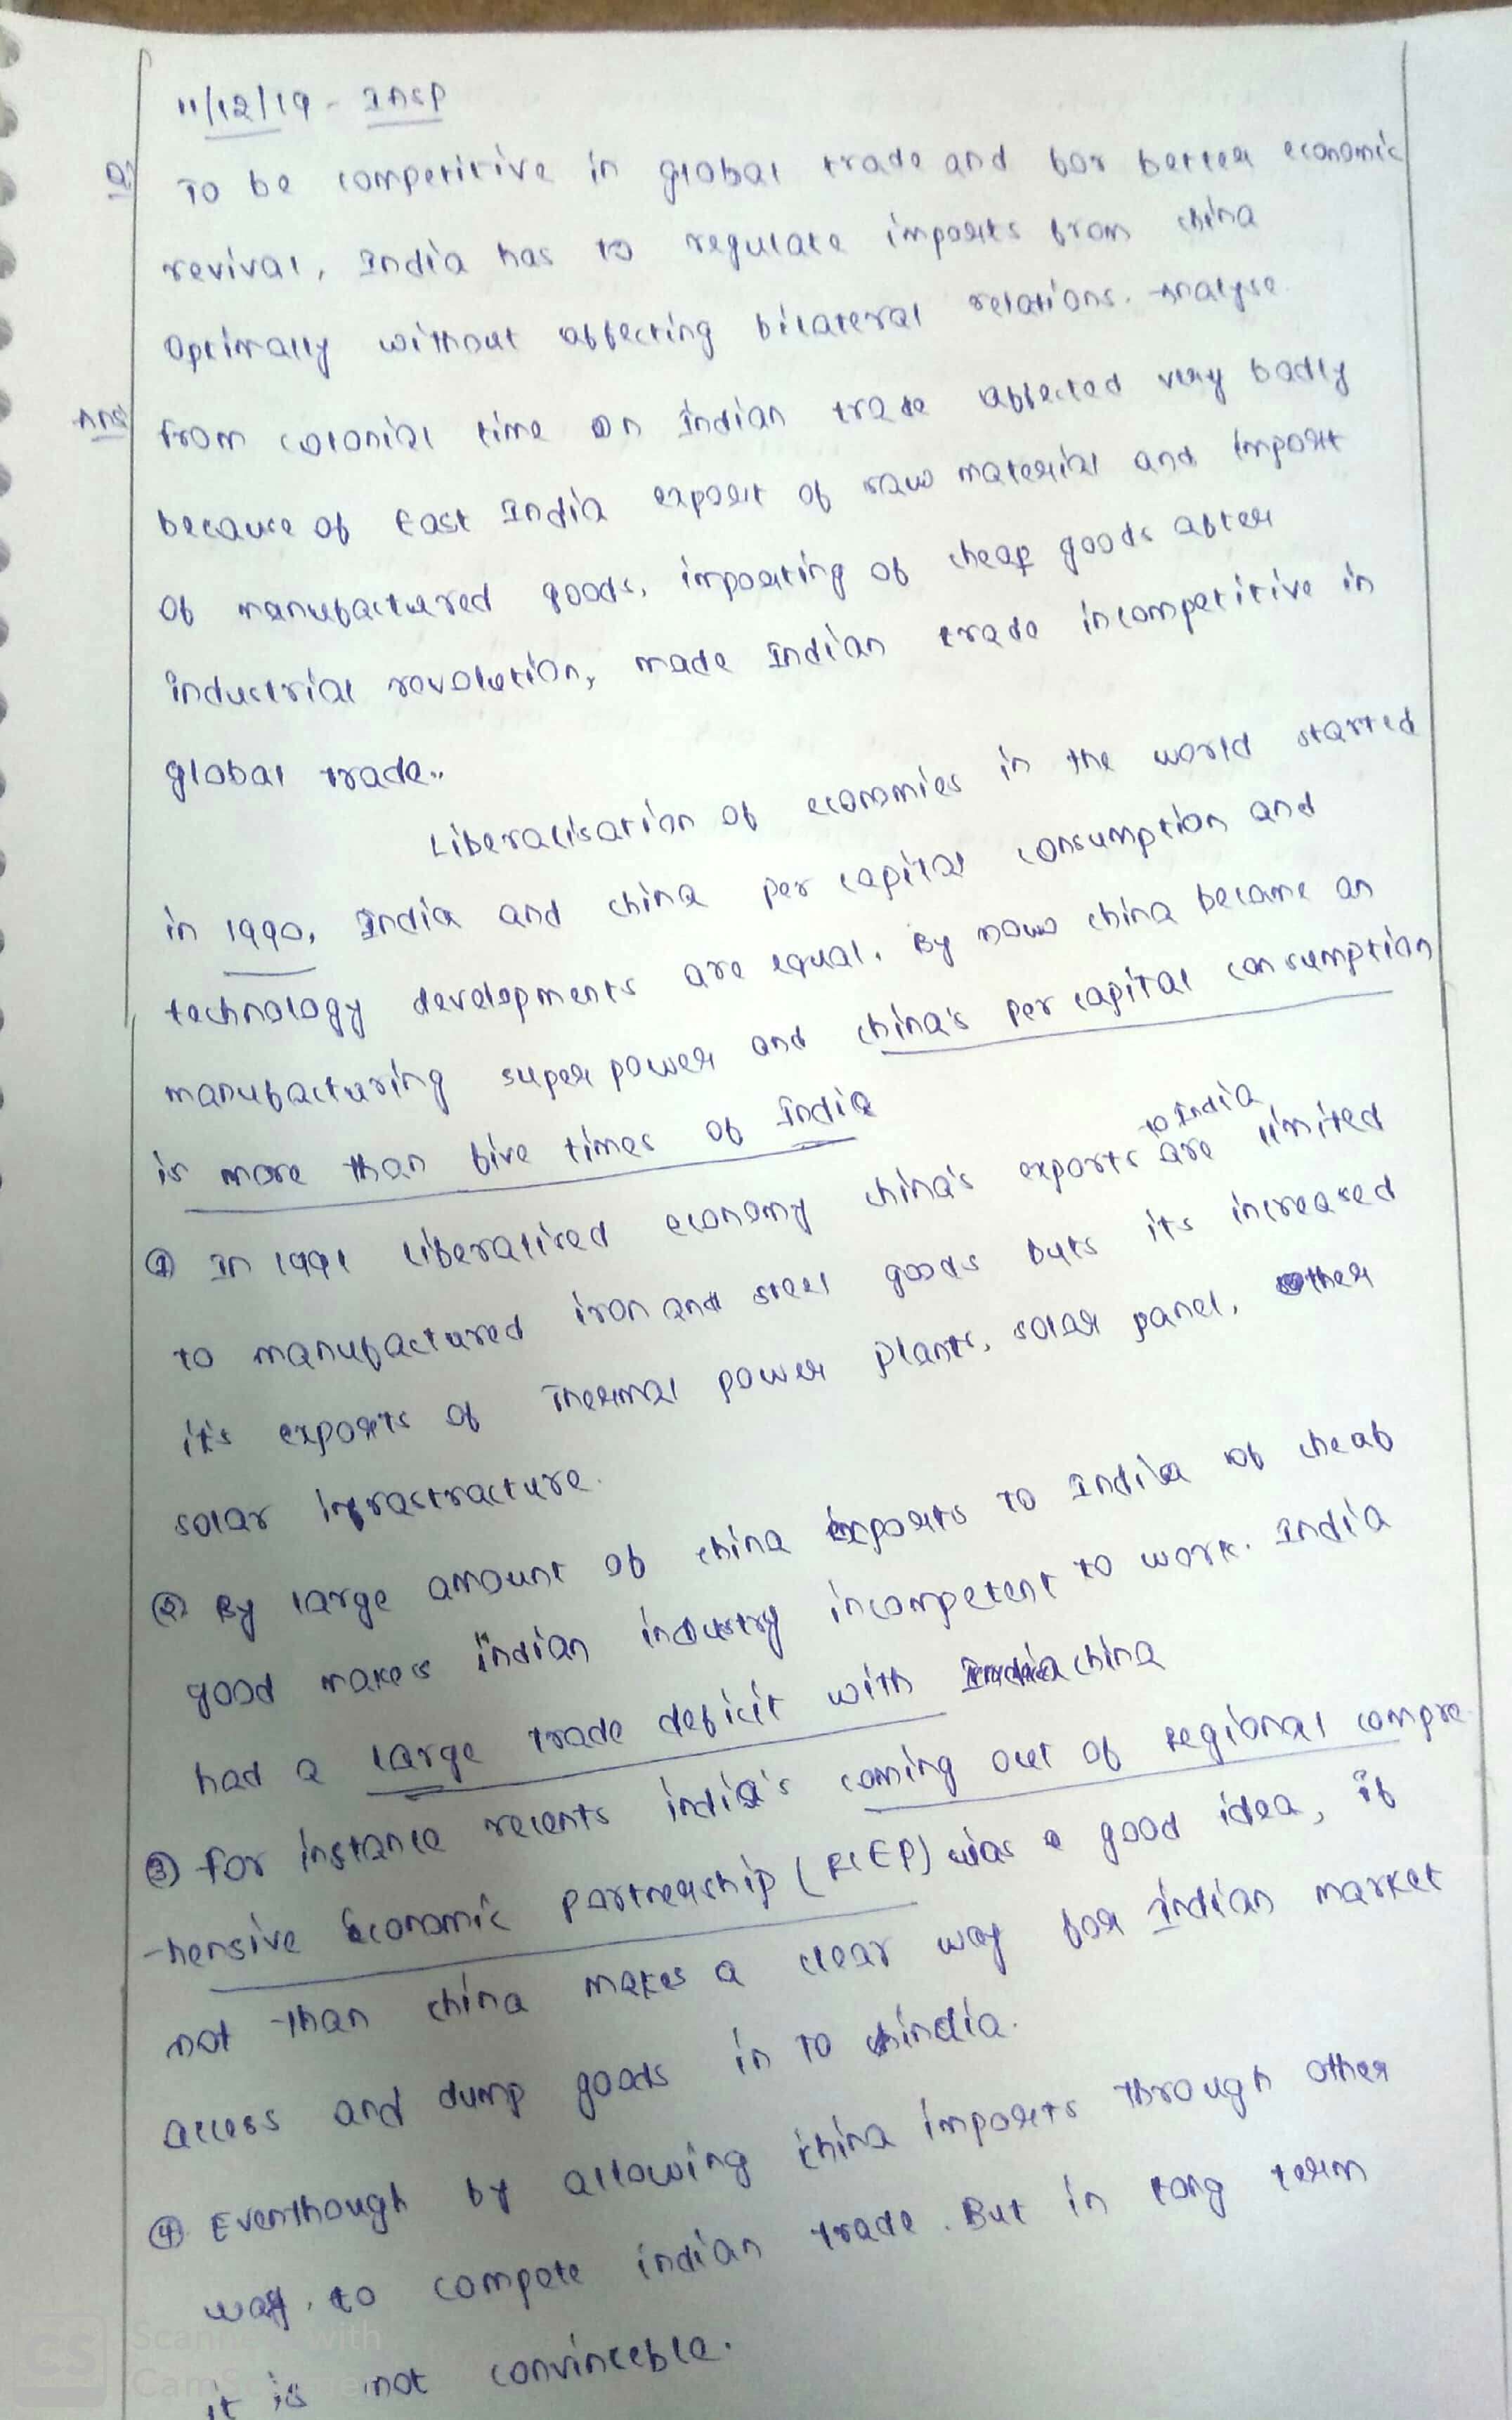 11/12/19 - INSP
Q) To be competitive in global trade and for better economic
revival, India has to regulate imports from china
optimally without affecting bilateral relations. Analyse.
Ans) From colonial time on Indian trade affected very badly
because of East India export of raw material and import
of manufactured goods, importing of cheap goods after
industrial rovolution, made Indian trade incompetitive in
global trade..
Liberalisation of economies in the world started
in 1990, India and china per capital consumption and
technology developments are equal. By now china became an
manufacturing super power and china's per capital consumption
is more than five times of India
① In 1991 liberalised economy china's exports to India are limited
to manufactured iron and steel goods buts its increased
it's exports of Thermal power plants, solar panel, other
solar infrastracture.
② By large amount of china exports to India of cheab
good makes indian industry incompetent to work. India
had a large trade deficit with china
③ For instance recents india's coming out of regional compre
-hensive Economic Partnership (RCEP) was a good idea, if
not than china makes a clear way for indian market
access and dump goods in to india.
④ Eventhough by allowing china imports through other
way, to compete indian trade. But in long term
it is not convinceble.
CS Scanned with
CamScanner